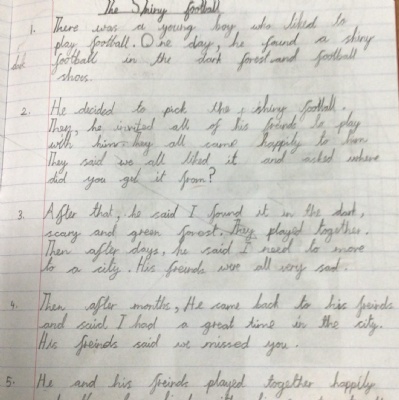 The Shiny football
1. There was a young boy who liked to
play football. One day, he found a shiny
football in the dark forest and football
shoes.
2. He decided to pick the shiny football.
They, he invited all of his freinds to play
with him. They all came happily to him
They said we all liked it and asked where
did you get it from?
3. After that, he said I found it in the dark,
scary and green forest. They played together.
Then after days, he said I need to move
to a city. His freinds were all very sad.
4. Then after months, He came back to his freinds
and said I had a great time in the city.
His freinds said we missed you.
5. He and his freinds played together happily